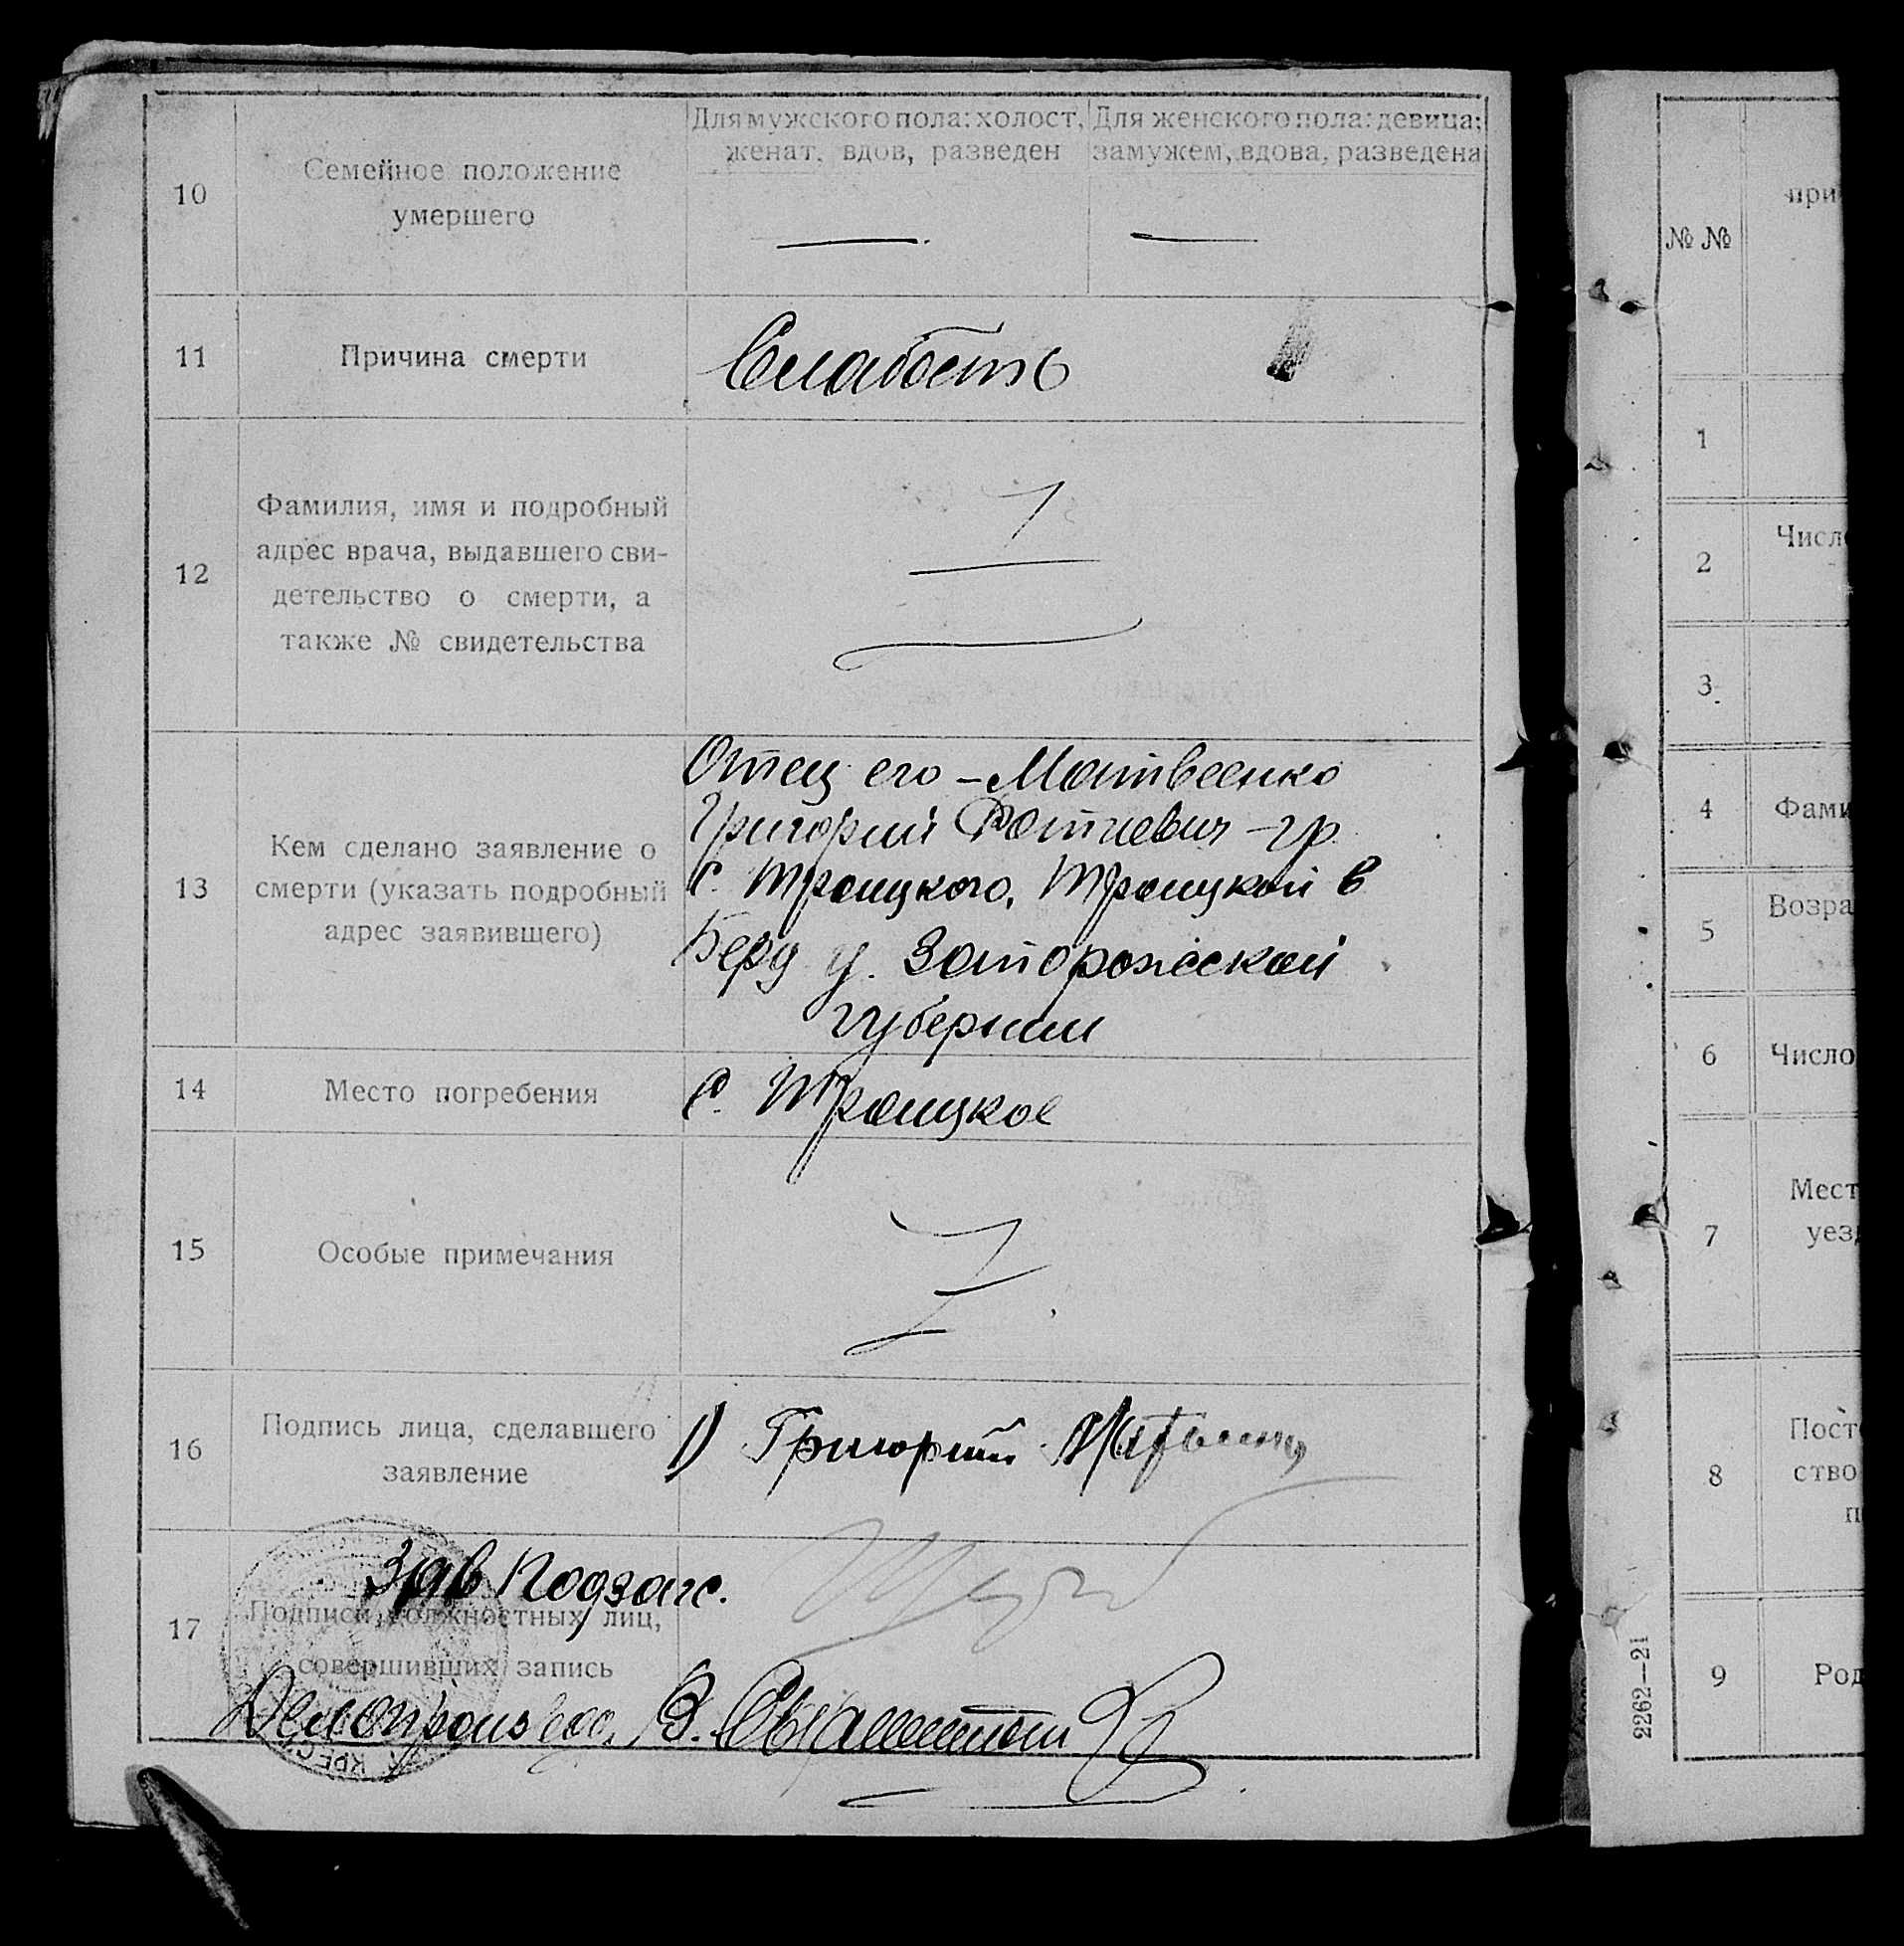 10
Семейное положение
умершего
Для мужского пола: холост,
женат, вдов, разведен
Для женского пола: девица;
замужем, вдова, разведена
11
Причина смерти
Слабость
12
Фамилия, имя и подробный
адрес врача, выдавшего сви-
детельство о смерти, а
также № свидетельства
13
Кем сделано заявление о
смерти (указать подробный
адрес заявившего)
Отец его – Матвеенко
Григорий – гр.
с. Троицкого, Троицкой в
Берд у. Запорожской
губернии
14
Место погребения
С. Троицкое
15
Особые примечания
16
Подпись лица, сделавшего
заявление
1) Григорий
17
Подписи должностных лиц,
совершивших запись
Зав Подзагс.
Делопроизвод. В.
№ №
при
1
2
Числ
3
4
Фами
5
Возра
6
Число
7
Мест
уез
8
Пост
ство
п
9
Род
2262—21